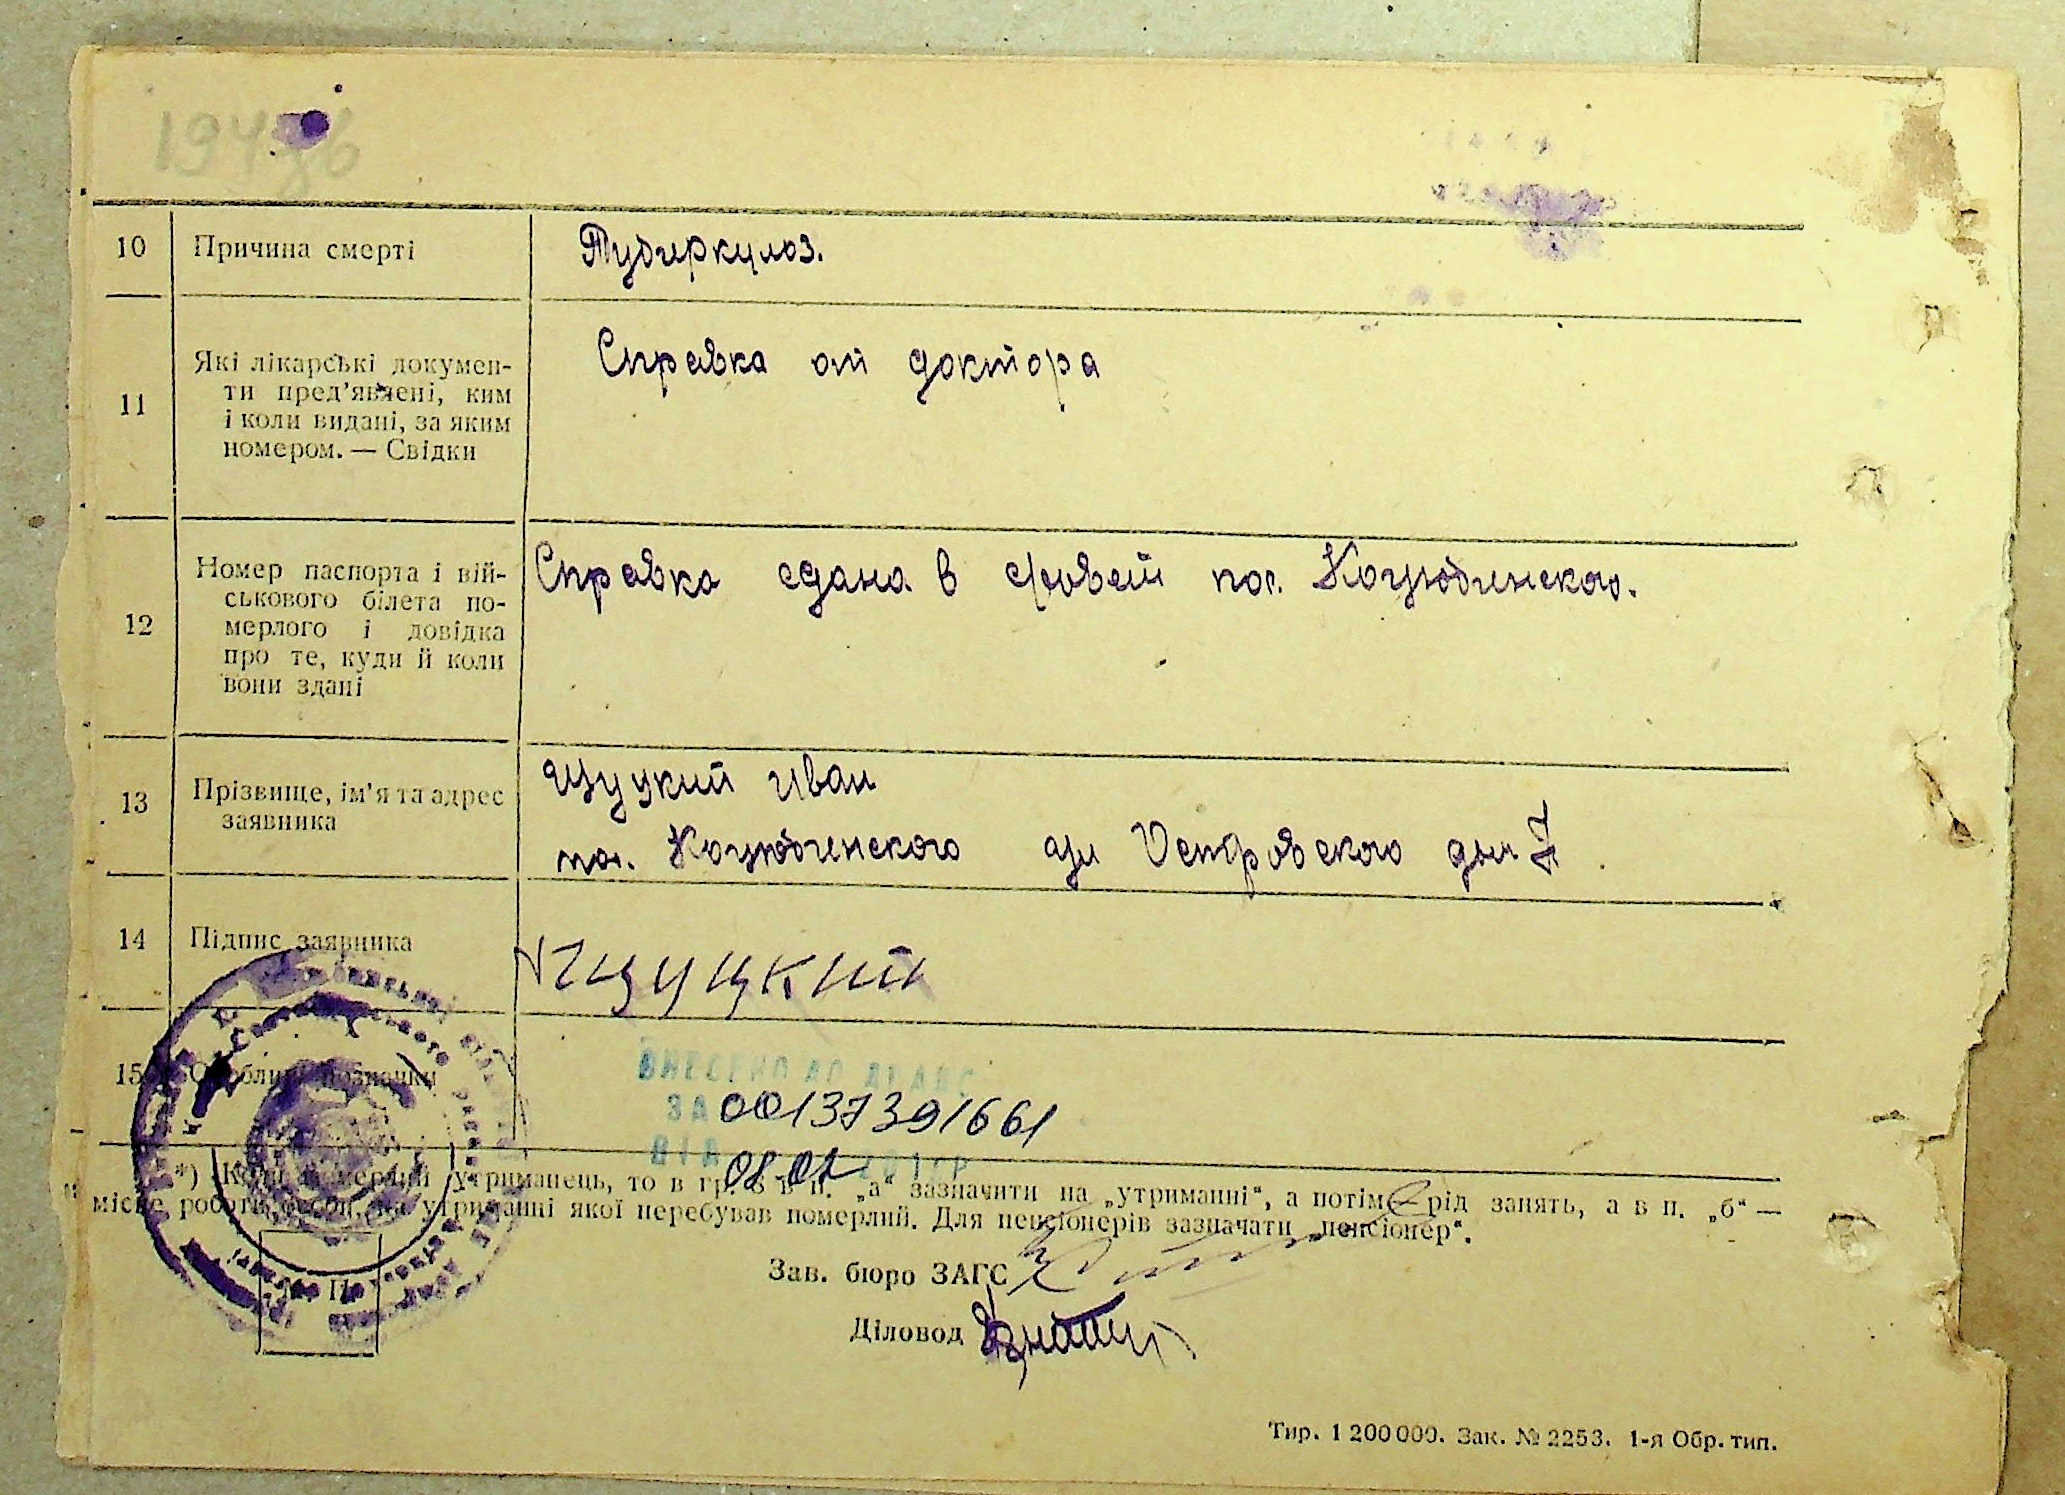 10 Причина смерті Туберкулоз.
11 Які лікарські докумен-
ти пред'явлені, ким
і коли видані, за яким
номером. — Свідки
Справка от доктора
12 Номер паспорта і вій-
ськового білета по-
мерлого і довідка
про те, куди й коли
вони здані
Справка сдана в пос. Коцюбинского.
13 Прізвище, ім'я та адрес
заявника
Щуцкий Иван
пос. Коцюбинского ул Островского дом 7
14 Підпис заявника Щуцкий
15 Особливі позначки
ВНЕСЕНО ДО ДРАЦС
ЗА 00137391661
ВІД 08.02
*) Коли померлий утриманець, то в гр. 8 в п. „а“ зазначити на „утриманні“, а потім рід занять, а в п. „б“ —
місце роботи особи, на утриманні якої перебував померлий. Для пенсіонерів зазначати „пенсіонер“.
Зав. бюро ЗАГС
Діловод
М. П.
Тир. 1 200 000. Зак. № 2253. 1-я Обр. тип.